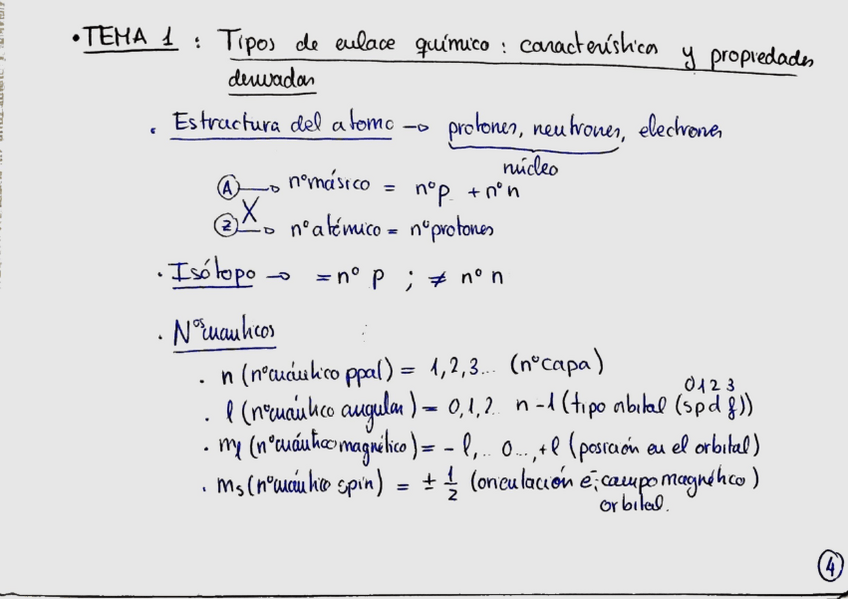 • TEMA 1 : Tipos de enlace químico : característica y propiedades
derivadas
• Estructura del atomo → protones, neutrones, electrones
núcleo
A → nº másico = nº p + nº n
X
Z → nº atómico = nº protones
• Isótopo → = nº p ; ≠ nº n
• Nos cuánticos
• n (nº cuántico ppal) = 1,2,3... (nº capa)
0 1 2 3
• l (nº cuántico angular) = 0,1,2.. n -1 (tipo orbital (s p d f))
• ml (nº cuántico magnético) = - l,.. 0..., +l (posición en el orbital)
• ms (nº cuántico spin) = ± 1/2 (orientación e-; campo magnético)
orbital.
4